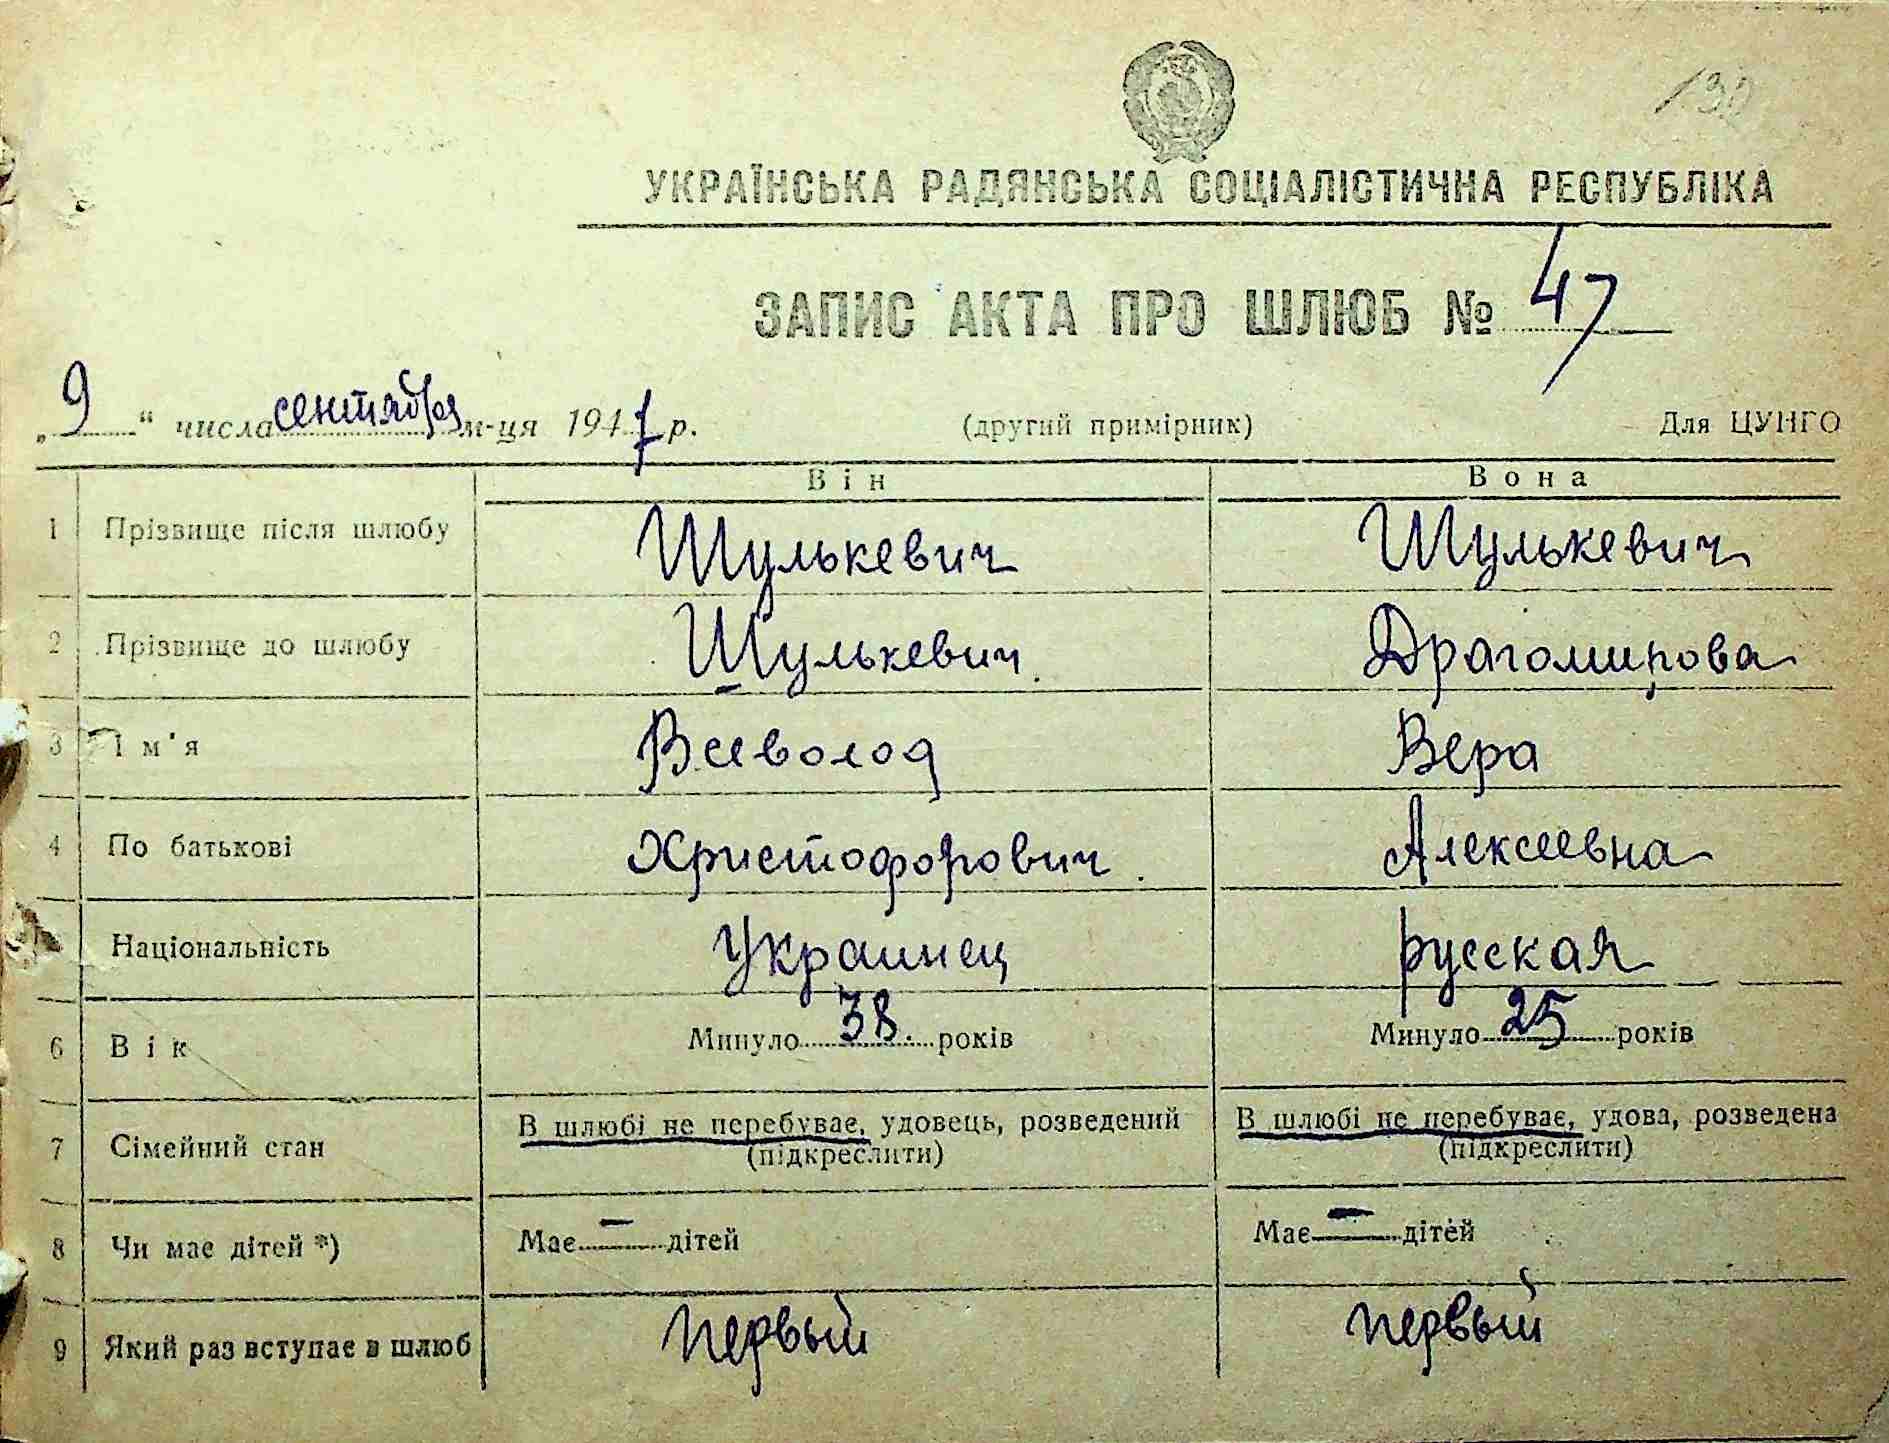 130
УКРАЇНСЬКА РАДЯНСЬКА СОЦІАЛІСТИЧНА РЕСПУБЛІКА
ЗАПИС АКТА ПРО ШЛЮБ № 47
„9“ числа сентября м-ця 1947 р. (другий примірник) Для ЦУНГО
Він Вона
1 Прізвище після шлюбу Шулькевич Шулькевич
2 Прізвище до шлюбу Шулькевич Драгомирова
3 Ім'я Всеволод Вера
4 По батькові Христофорович Алексеевна
Національність Украинец русская
6 Вік Минуло 38 років Минуло 25 років
7 Сімейний стан В шлюбі не перебуває, удовець, розведений В шлюбі не перебуває, удова, розведена
(підкреслити) (підкреслити)
8 Чи має дітей *) Має — дітей Має — дітей
9 Який раз вступає в шлюб первый первый